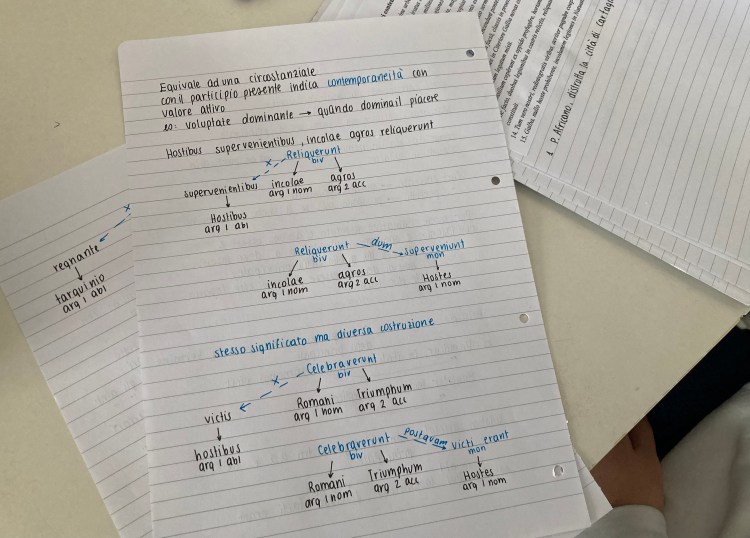 Equivale ad una circostanziale
con il participio presente indica contemporaneità con
valore attivo
es: voluptate dominante → quando domina il piacere
Hostibus supervenientibus, incolae agros reliquerunt
x Reliquerunt
biv
supervenientibus incolae agros
arg 1 nom arg 2 acc
Hostibus
arg 1 abl
Reliquerunt dum superveniunt
biv mon
incolae agros Hostes
arg 1 nom arg 2 acc arg 1 nom
stesso significato ma diversa costruzione
x Celebraverunt
biv
victis Romani Triumphum
arg 1 nom arg 2 acc
hostibus
arg 1 abl
Celebraverunt postquam victi erant
biv mon
Romani Triumphum Hostes
arg 1 nom arg 2 acc arg 1 nom
x
regnante
tarquinio
arg 1 abl
1 P. Africano, distrutta la città di Cartag